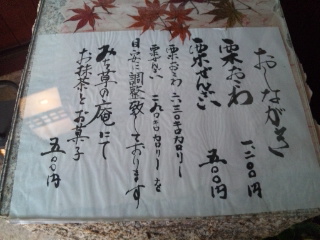 おしながき
栗おこわ 一、三〇〇円
栗ぜんざい 五〇〇円
栗おこわ 六三〇キロカロリー
栗ぜんざい 一九〇キロカロリーを
目安に調整致しております
みち草の庵にて
お抹茶とお菓子 五〇〇円